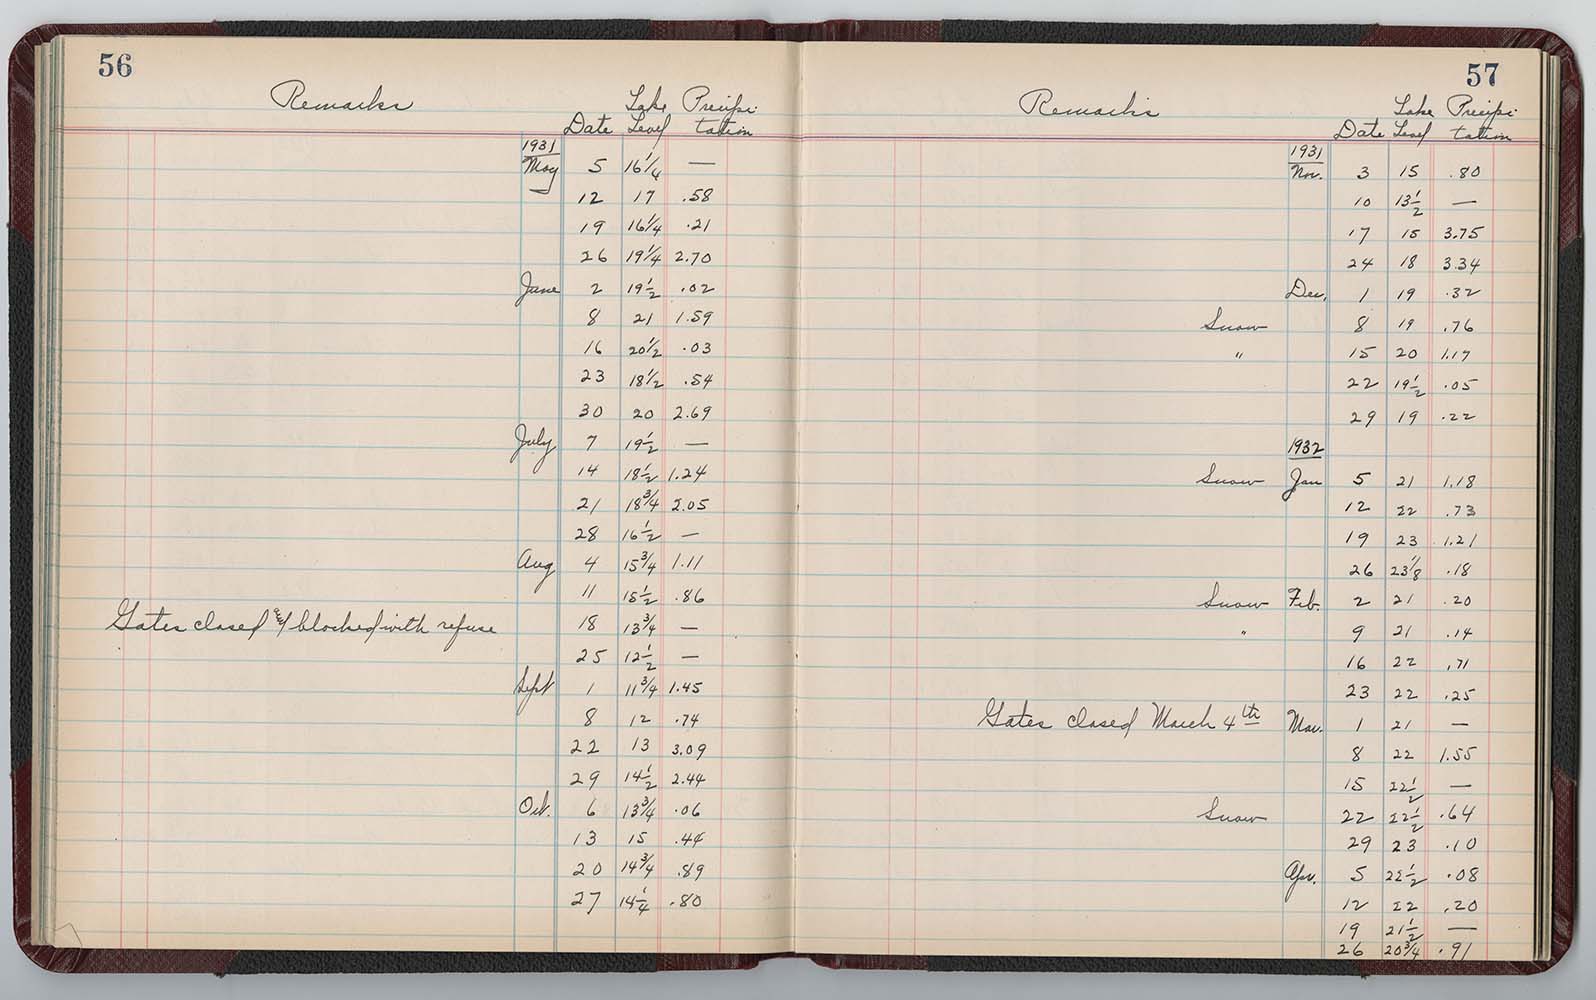 56
Remarks Date Lake Level Precipi- tation
1931
May 5 16 1/4 —
12 17 .58
19 16 1/4 .21
26 19 1/4 2.70
June 2 19 1/2 .02
8 21 1.59
16 20 1/2 .03
23 18 1/2 .54
30 20 2.69
July 7 19 1/2 —
14 18 1/2 1.24
21 18 3/4 2.05
28 16 1/2 —
Aug 4 15 3/4 1.11
11 15 1/2 .86
Gates closed & blocked with refuse 18 13 3/4 —
25 12 1/2 —
Sept 1 11 3/4 1.45
8 12 .74
22 13 3.09
29 14 1/2 2.44
Oct. 6 13 3/4 .06
13 15 .44
20 14 3/4 .89
27 14 1/4 .80
57
Remarks Date Lake Level Precipi- tation
1931
Nov. 3 15 .80
10 13 1/2 —
17 15 3.75
24 18 3.34
Dec. 1 19 .32
Snow 8 19 .76
" 15 20 1.17
22 19 1/2 .05
29 19 .22
1932
Snow Jan 5 21 1.18
12 22 .73
19 23 1.21
26 23 1/8 .18
Snow Feb. 2 21 .20
" 9 21 .14
16 22 .71
23 22 .25
Gates closed March 4th Mar. 1 21 —
8 22 1.55
15 22 1/2 —
Snow 22 22 1/2 .64
29 23 .10
Apr. 5 22 1/2 .08
12 22 .20
19 21 1/2 —
26 20 3/4 .91